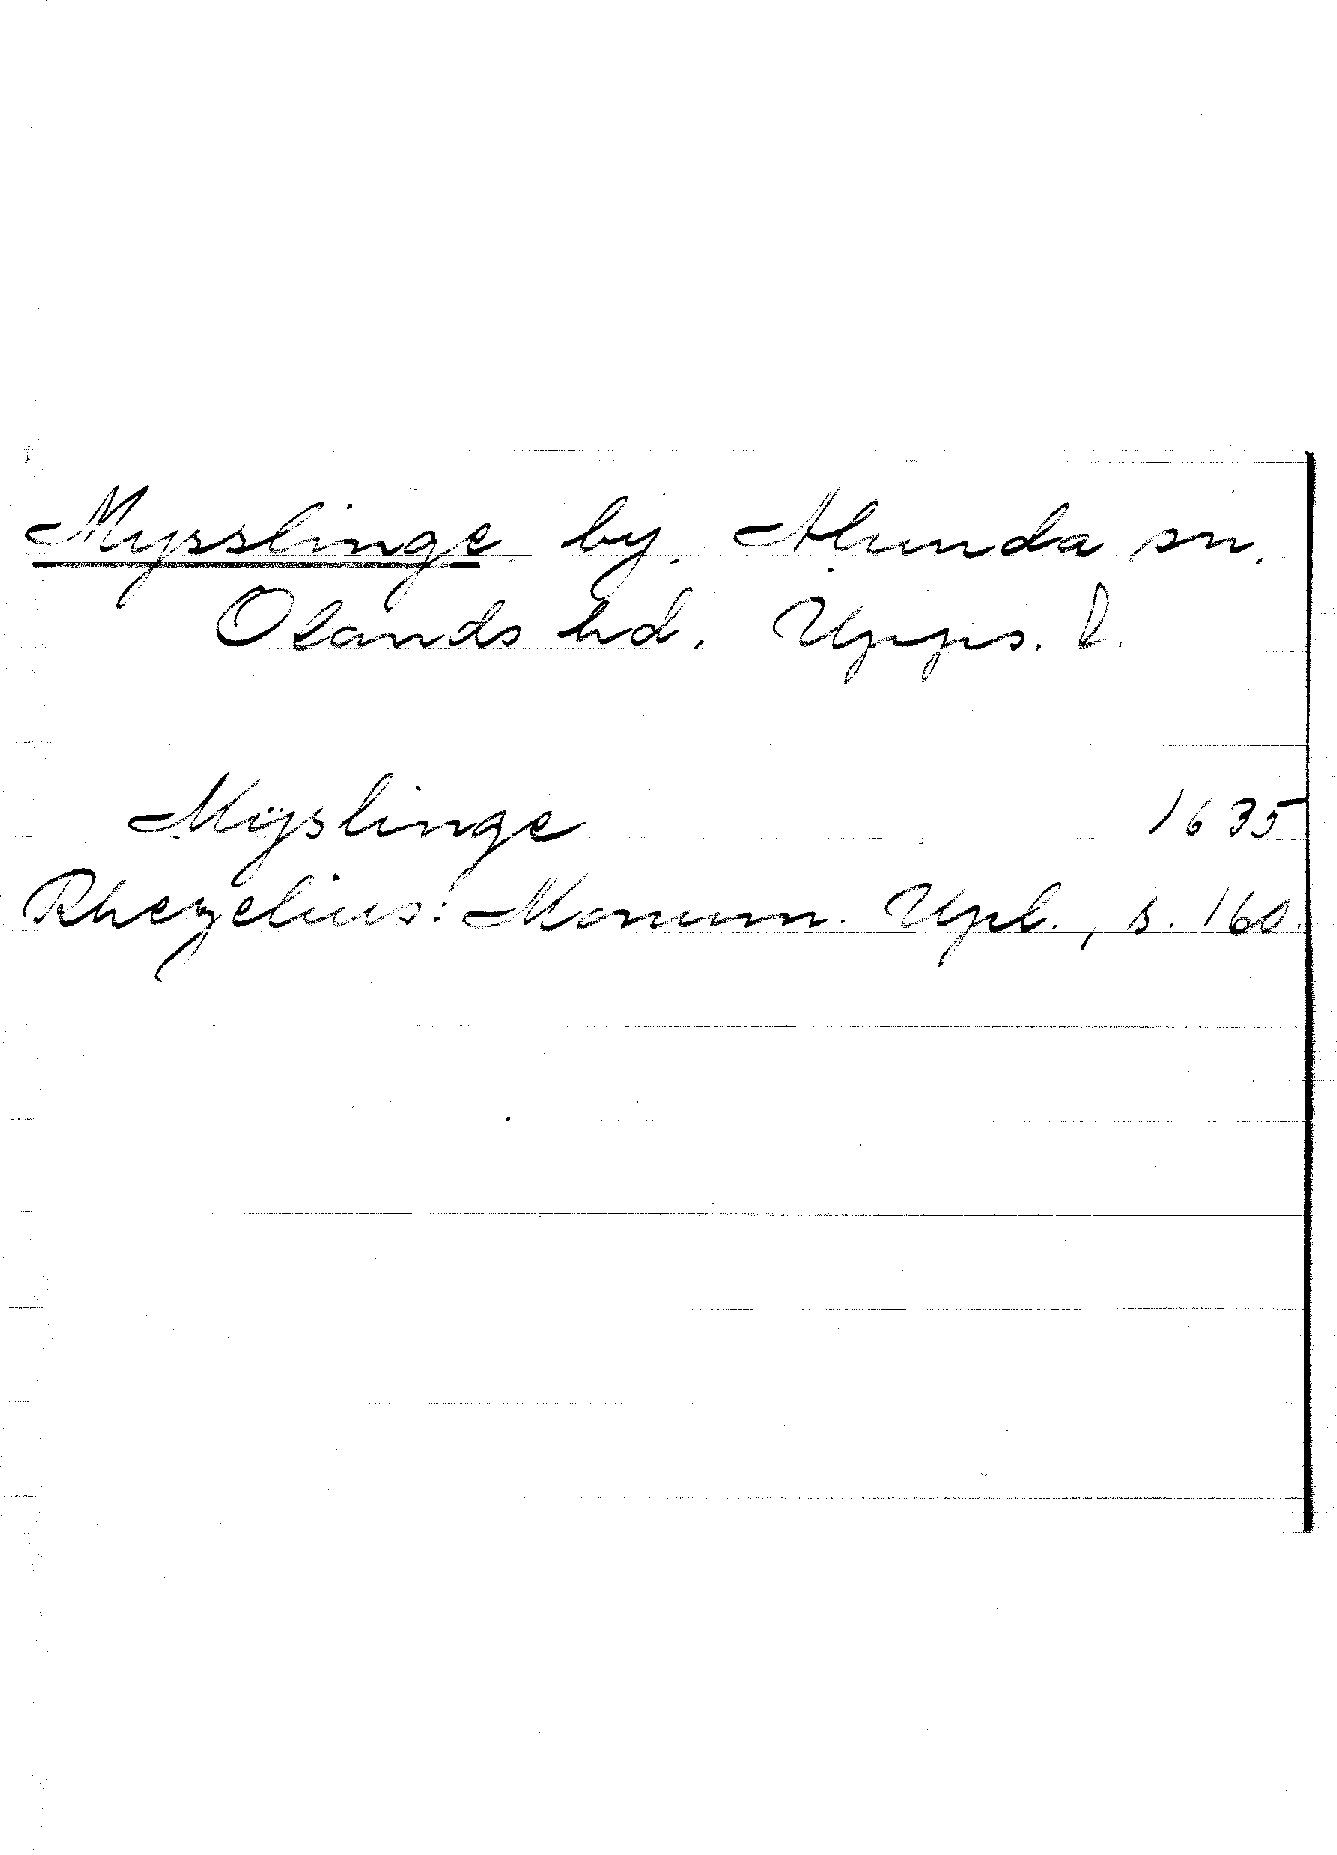 Mysslinge by. Alunda sn.
Olands hd. Upps. l.
Mÿslinge 1635
Rhezelius: Monum. Upl., s. 160.